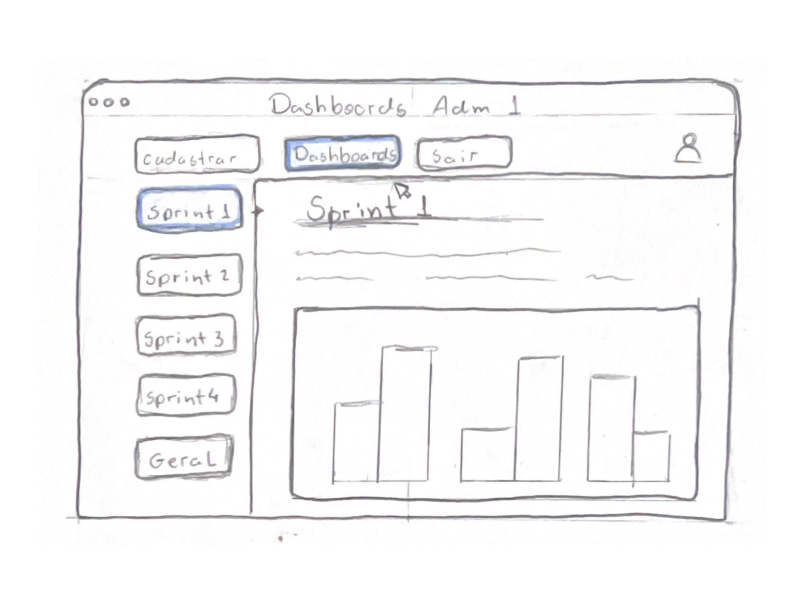 Dashboards Adm 1
Cadastrar Dashboards Sair
Sprint 1
Sprint 1
Sprint 2
Sprint 3
Sprint 4
Geral